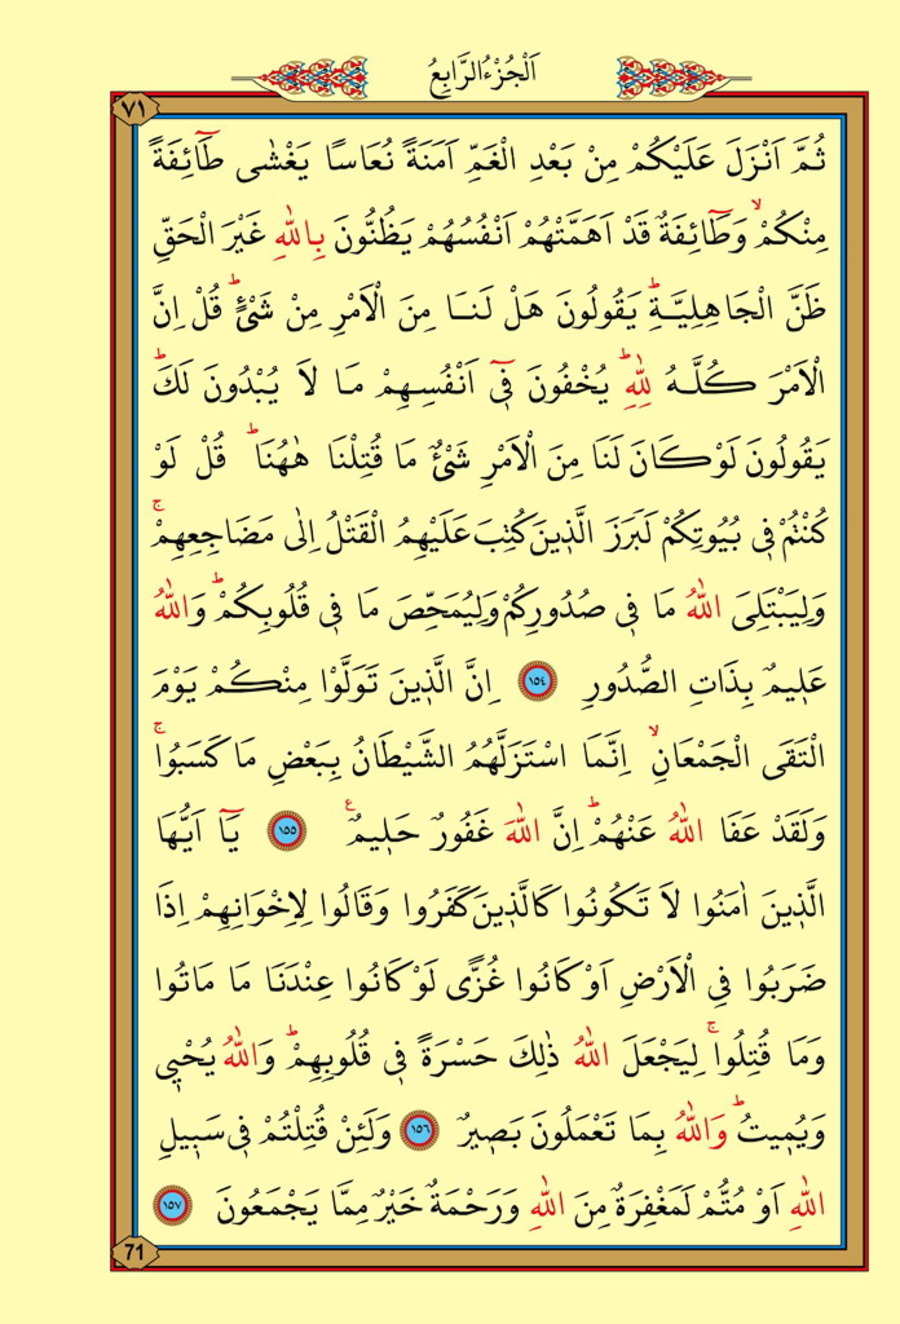 اَلْجُزْءُ الرَّابِعُ
٧١
ثُمَّ اَنْزَلَ عَلَيْكُمْ مِنْ بَعْدِ الْغَمِّ اَمَنَةً نُعَاسًا يَغْشٰى طَٓائِفَةً
مِنْكُمْۙ وَطَٓائِفَةٌ قَدْ اَهَمَّتْهُمْ اَنْفُسُهُمْ يَظُنُّونَ بِاللّٰهِ غَيْرَ الْحَقِّ
ظَنَّ الْجَاهِلِيَّةِۜ يَقُولُونَ هَلْ لَنَا مِنَ الْاَمْرِ مِنْ شَيْءٍۜ قُلْ اِنَّ
الْاَمْرَ كُلَّهُ لِلّٰهِۜ يُخْفُونَ ف۪ٓي اَنْفُسِهِمْ مَا لَا يُبْدُونَ لَكَۜ
يَقُولُونَ لَوْ كَانَ لَنَا مِنَ الْاَمْرِ شَيْءٌ مَا قُتِلْنَا هٰهُنَاۜ قُلْ لَوْ
كُنْتُمْ ف۪ي بُيُوتِكُمْ لَبَرَزَ الَّذ۪ينَ كُتِبَ عَلَيْهِمُ الْقَتْلُ اِلٰى مَضَاجِعِهِمْۚ
وَلِيَبْتَلِيَ اللّٰهُ مَا ف۪ي صُدُورِكُمْ وَلِيُمَحِّصَ مَا ف۪ي قُلُوبِكُمْۜ وَاللّٰهُ
عَل۪يمٌ بِذَاتِ الصُّدُورِ ١٥٤ اِنَّ الَّذ۪ينَ تَوَلَّوْا مِنْكُمْ يَوْمَ
الْتَقَى الْجَمْعَانِۙ اِنَّمَا اسْتَزَلَّهُمُ الشَّيْطَانُ بِبَعْضِ مَا كَسَبُواۚ
وَلَقَدْ عَفَا اللّٰهُ عَنْهُمْۜ اِنَّ اللّٰهَ غَفُورٌ حَل۪يمٌ۟ ١٥٥ يَٓا اَيُّهَا
الَّذ۪ينَ اٰمَنُوا لَا تَكُونُوا كَالَّذ۪ينَ كَفَرُوا وَقَالُوا لِاِخْوَانِهِمْ اِذَا
ضَرَبُوا فِي الْاَرْضِ اَوْ كَانُوا غُزًّى لَوْ كَانُوا عِنْدَنَا مَا مَاتُوا
وَمَا قُتِلُواۚ لِيَجْعَلَ اللّٰهُ ذٰلِكَ حَسْرَةً ف۪ي قُلُوبِهِمْۜ وَاللّٰهُ يُحْي۪ي
وَيُم۪يتُۜ وَاللّٰهُ بِمَا تَعْمَلُونَ بَص۪يرٌ ١٥٦ وَلَئِنْ قُتِلْتُمْ ف۪ي سَب۪يلِ
اللّٰهِ اَوْ مُتُّمْ لَمَغْفِرَةٌ مِنَ اللّٰهِ وَرَحْمَةٌ خَيْرٌ مِمَّا يَجْمَعُونَ ١٥٧
71